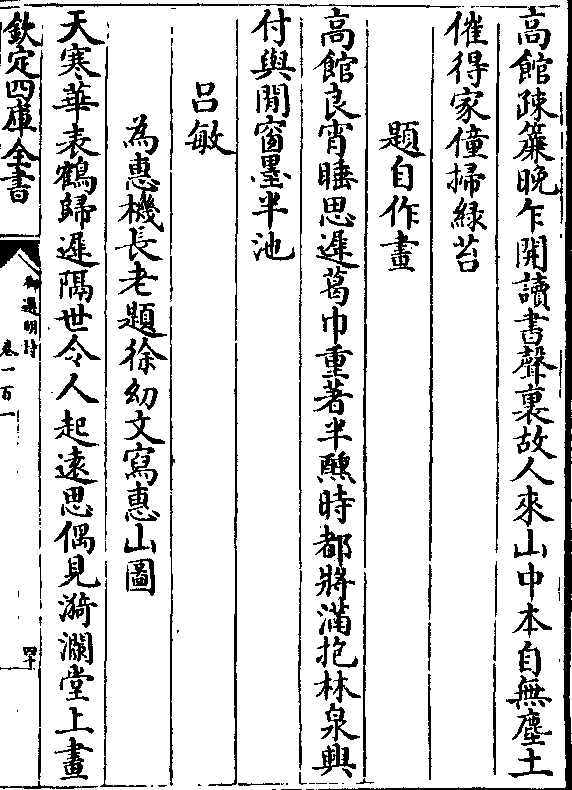 高館疎簾晚乍開讀書聲裏故人來山中本自無塵土
催得家僮掃緑苔
題自作畫
高館良宵睡思遲葛巾重著半醺時都將滿抱林泉興
付與閒窗墨半池
吕敏
為惠機長老題徐幼文寫惠山圖
天寒華表鶴歸遲隔世令人起遠思偶見漪瀾堂上畫
欽定四庫全書
御選明詩
卷一百一
四十